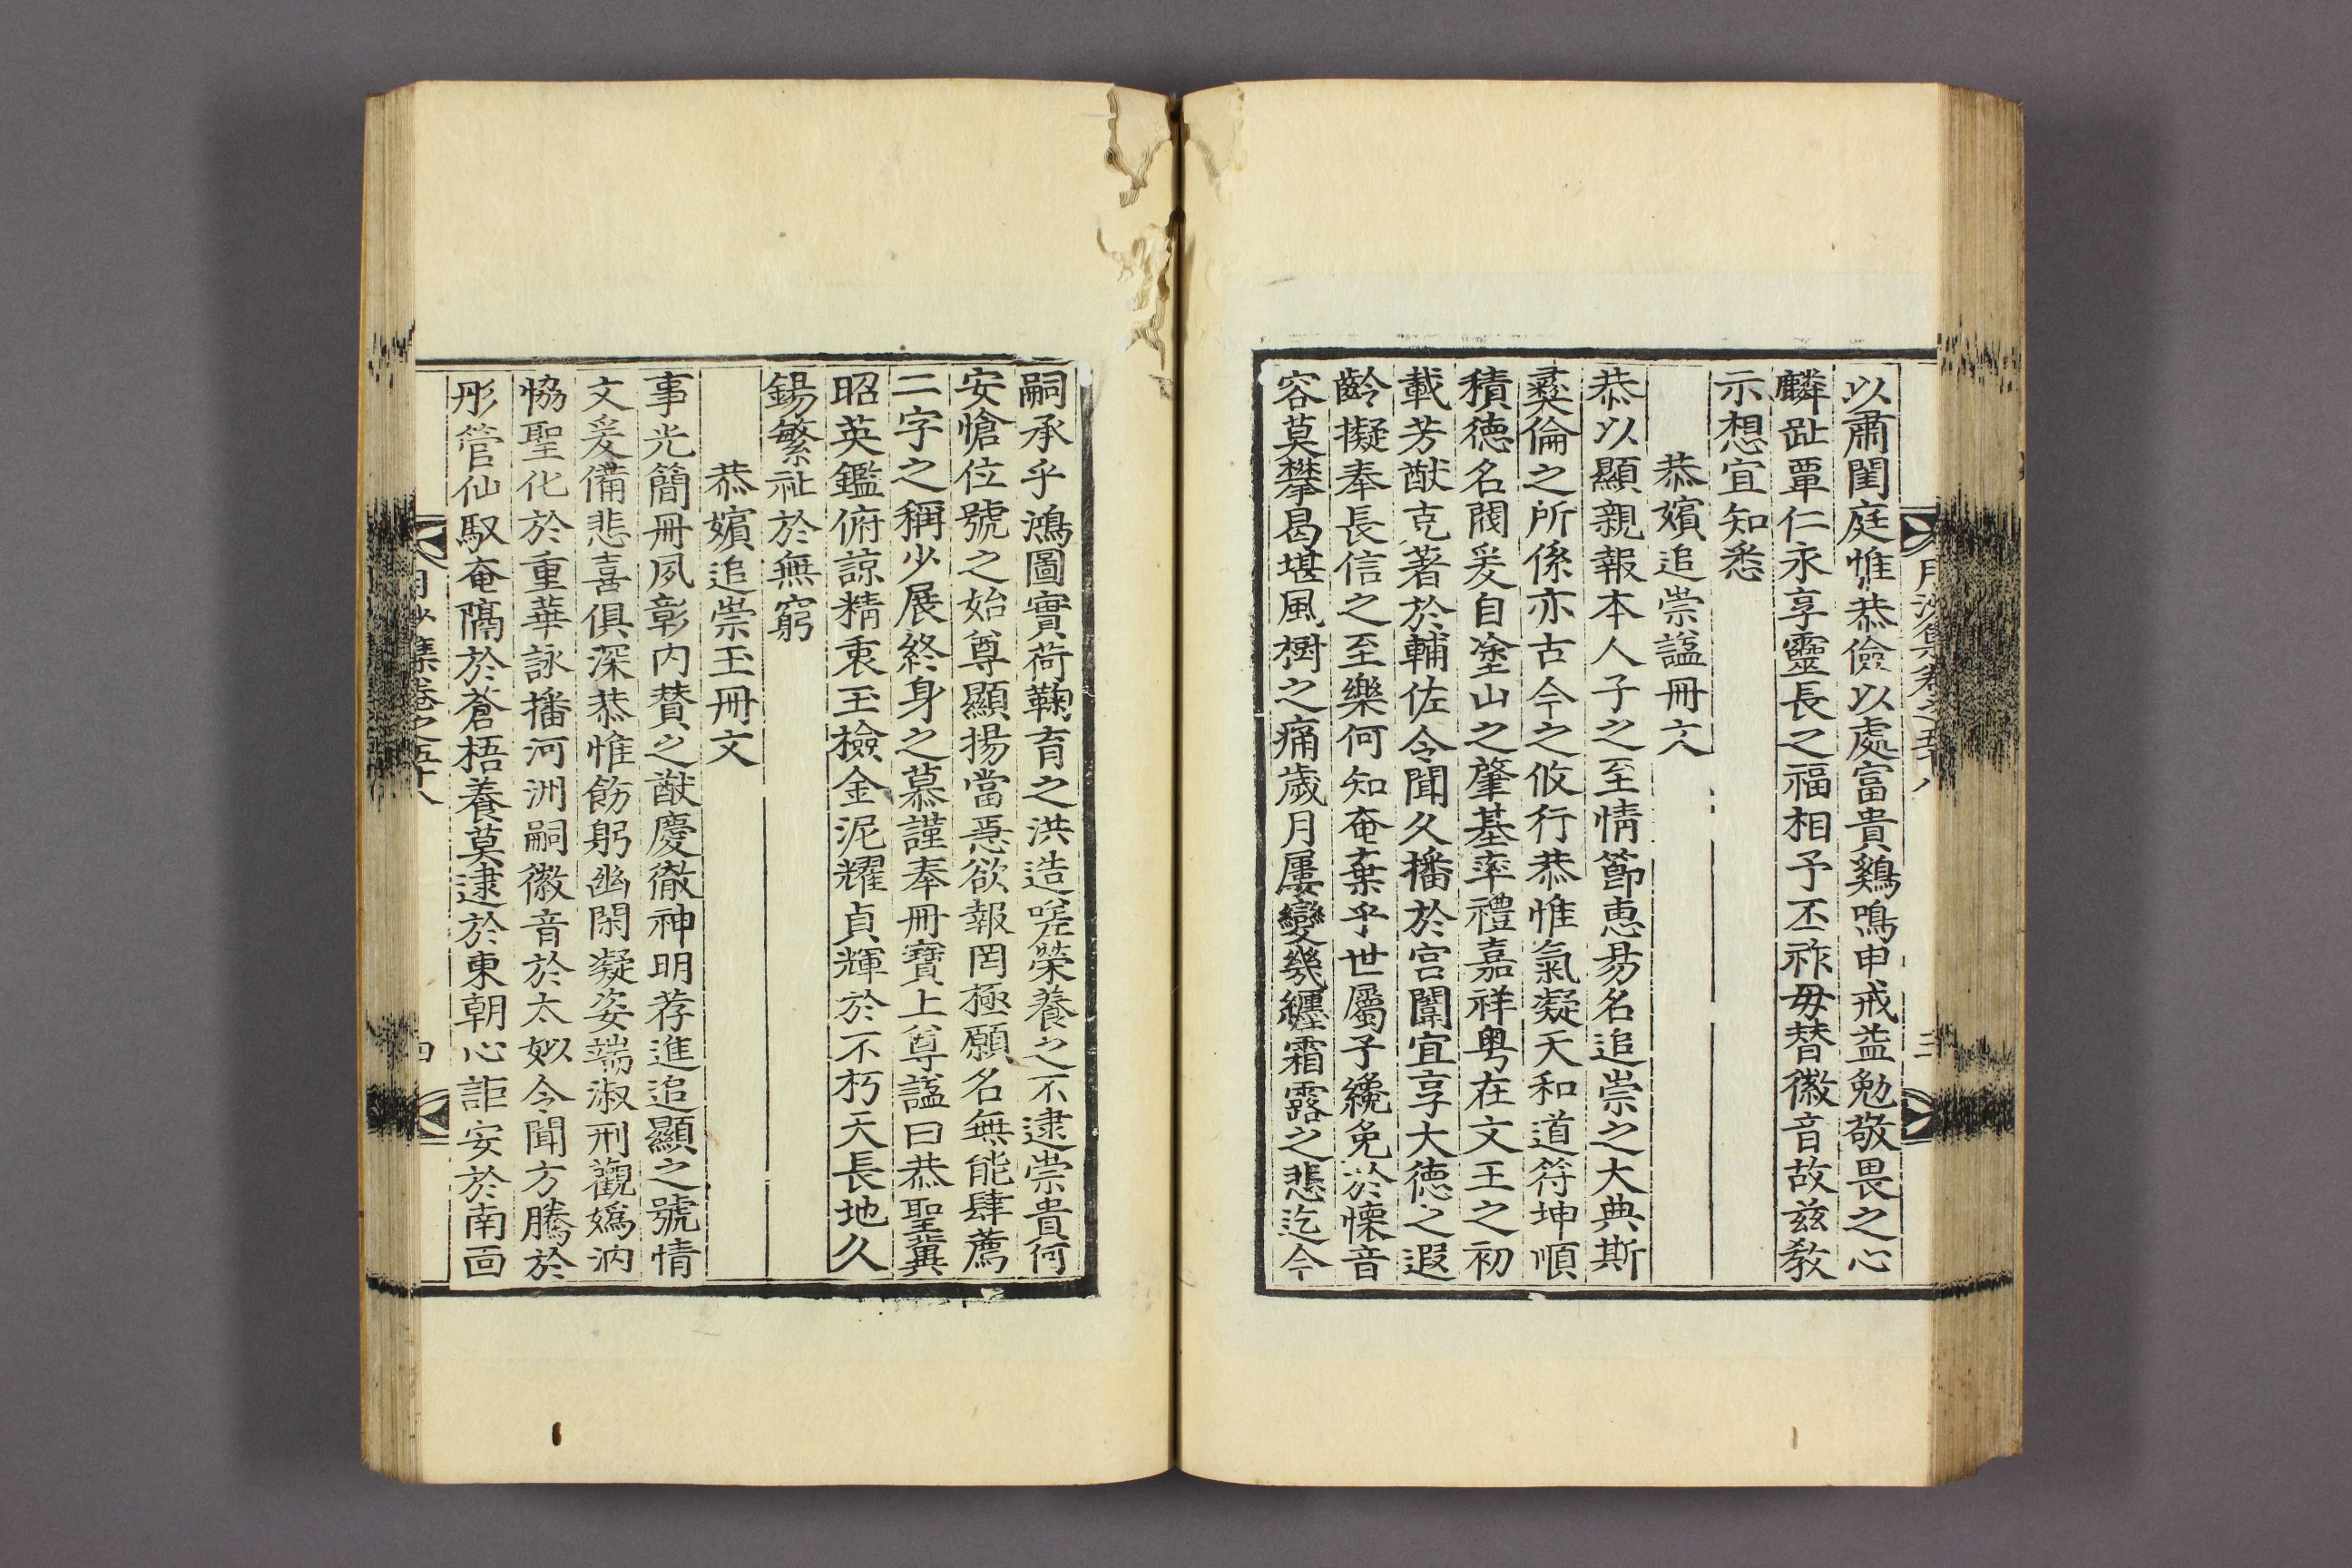 月沙集卷之五十八
三
以肅閨庭惟恭儉以處富貴鷄鳴申戒益勉敬畏之心
麟趾覃仁永享靈長之福相予丕祚毋替徽音故玆敎
示想宜知悉
恭嬪追崇謚冊文
恭以顯親報本人子之至情節惠易名追崇之大典斯
彛倫之所係亦古今之攸行恭惟氣凝天和道符坤順
積德名閥爰自塗山之肇基率禮嘉祥粤在文王之初
載芳猷克著於輔佐令聞久播於宮闈宜享大德之遐
齡擬奉長信之至樂何知奄棄乎世屬予纔免於懷音
容莫攀曷堪風樹之痛歲月屢變幾纒霜露之悲迄今
嗣承乎鴻圖實荷鞠育之洪造嗟榮養之不逮崇貴何
安愴位號之始尊顯揚當亟欲報罔極願名無能肆薦
二字之稱少展終身之慕謹奉冊寶上尊謚曰恭聖冀
昭英鑑俯諒精衷玉檢金泥耀貞輝於不朽天長地久
錫繁祉於無窮
恭嬪追崇玉冊文
事光簡冊夙彰內賛之猷慶徹神明荐進追顯之號情
文爰備悲喜俱深恭惟飭躬幽閑凝姿端淑刑觀嬀汭
恊聖化於重華詠播河洲嗣徽音於太姒令聞方騰於
彤管仙馭奄隔於蒼梧養莫逮於東朝心詎安於南面
月沙集卷之五十八
四